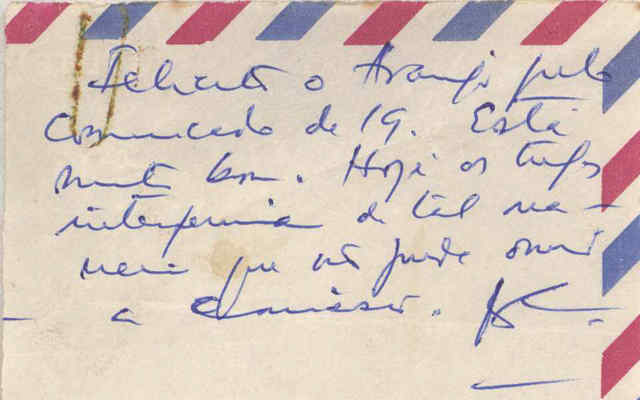 Felicito o Araújo pelo
comunicado de 19. Está
muito bom. Hoje os tugas
interferiram de tal ma-
neira que não pude ouvir
a emissão.